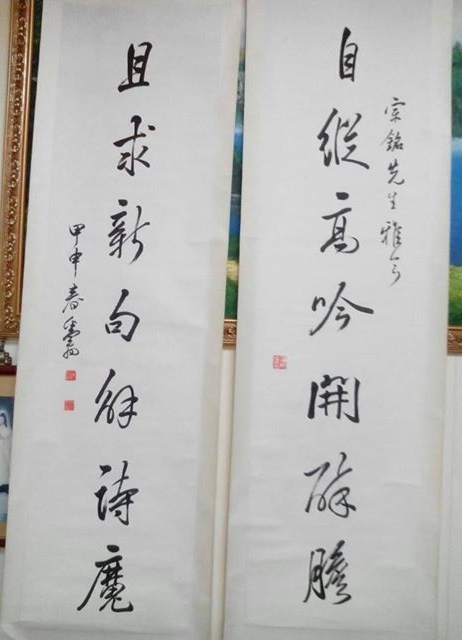 宗銘先生雅正
自縱高吟開醉膽
且求新句解詩魔
甲申春